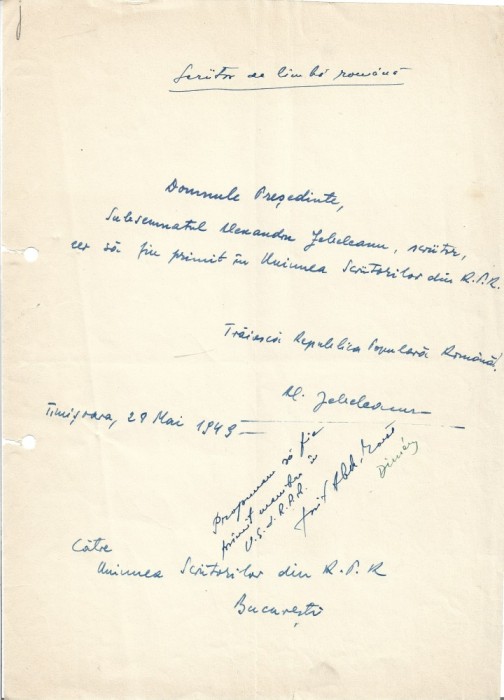 Scriitor de limbă română
Domnule Președinte,
Subsemnatul Alexandru Jebeleanu, scriitor,
cer să fiu primit în Uniunea Scriitorilor din R.P.R.
Trăiască Republica Populară Română!
Al. Jebeleanu
Timișoara, 28 Mai 1949
Propunem să fie
primit membru în
U.S.
Către
Uniunea Scriitorilor din R.P.R
București